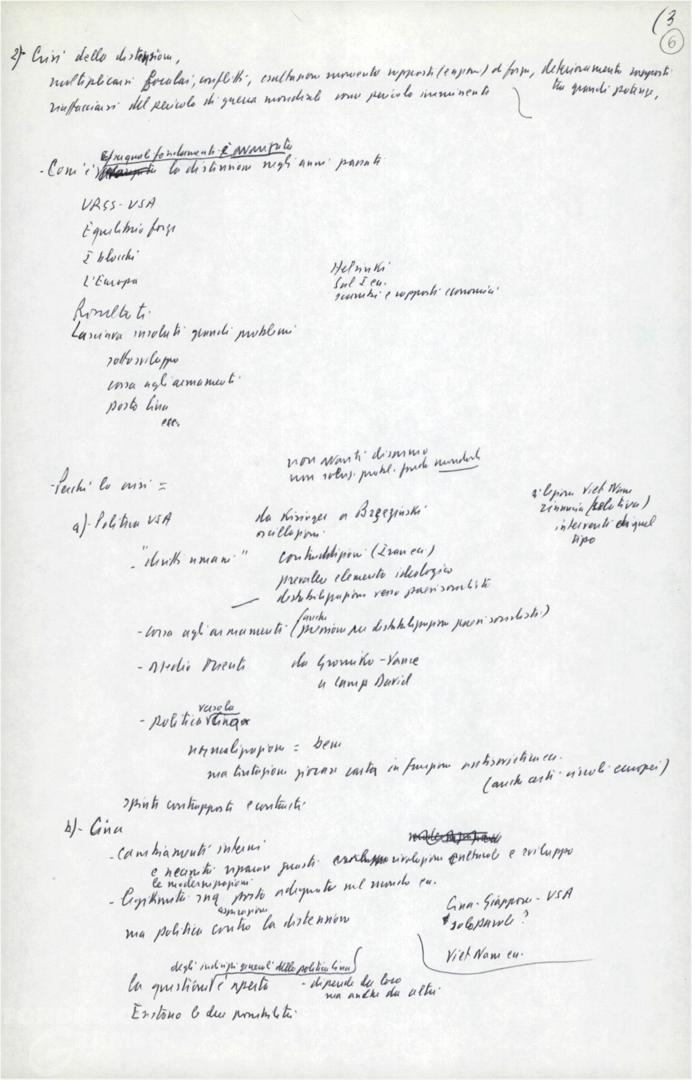 (3
6
2)- Crisi della distensione,
moltiplicarsi focolai, conflitti, esaltazione momento rapporti di forza, deterioramento rapporti
tra grandi potenze,
riaffacciarsi del pericolo di guerra mondiale come pericolo imminente
e su quali fondamenti è avanzata
- Com'è la distensione negli anni passati
URSS - USA
Equilibrio forze
I blocchi
L'Europa
Helsinki
Sal I ecc.
scambi e rapporti economici
Risultati
Lasciava insoluti grandi problemi
sottosviluppo
corsa agli armamenti
posto Cina
ecc.
non avanti disarmo
non soluz. probl. mondiale
- Perché la crisi =
a)- Politica USA
da Kissinger a Brzezinski
oscillazioni
Viet Nam
rinuncia (relativa)
interventi di quel
tipo
- "diritti umani"
contraddizioni (Iran ecc.)
prevalere elemento ideologico
destabilizzazione verso paesi socialisti
- corsa agli armamenti (anche pressione per destabilizzazione paesi socialisti)
- Medio Oriente
da Gromiko - Vance
a Camp David
- politica verso la Cina
normalizzazione = bene
ma tentazione giocare carta in funzione antisovietica ecc.
(anche certi circoli europei)
spinte contrapposte e contrasti
b)- Cina
- Cambiamenti interni
e necessità riparare guasti rivoluzione culturale e sviluppo
le modernizzazioni
- legittimità sua aspirazione posto adeguato nel mondo ecc.
ma politica contro la distensione
Cina - Giappone - USA
solo parole?
Viet Nam ecc.
degli indirizzi generali della politica Cina
la questione è aperta
- dipende da loro
ma anche da altri
Esistono le due possibilità